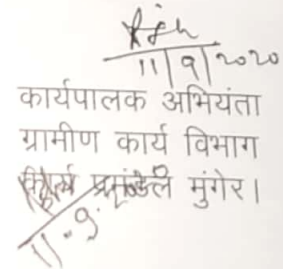 11/9/2020
कार्यपालक अभियंता
ग्रामीण कार्य विभाग
कार्य प्रमंडल मुंगेर।
11-9-